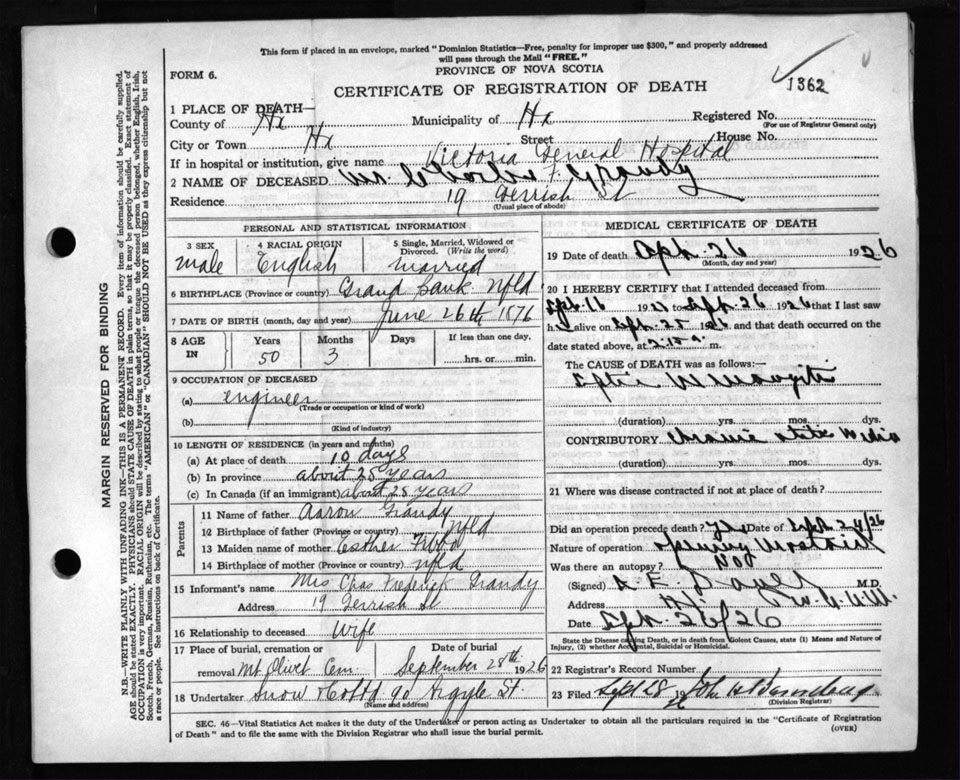 This form if placed in an envelope, marked "Dominion Statistics—Free, penalty for improper use $300," and properly addressed
will pass through the Mail "FREE."
FORM 6.
PROVINCE OF NOVA SCOTIA
CERTIFICATE OF REGISTRATION OF DEATH
1362
1 PLACE OF DEATH—
County of Hx Municipality of Hx Registered No.
(For use of Registrar General only)
City or Town Hx Street House No.
If in hospital or institution, give name Victoria General Hospital
2 NAME OF DECEASED Mr. Charles F. Grandy
Residence 19 Gerrish St
(Usual place of abode)
PERSONAL AND STATISTICAL INFORMATION
3 SEX 4 RACIAL ORIGIN 5 Single, Married, Widowed or
Divorced. (Write the word)
male English married
6 BIRTHPLACE (Province or country) Grand Bank Nfld
7 DATE OF BIRTH (month, day and year) June 26th 1876
8 AGE IN Years Months Days If less than one day.
50 3 hrs. or min.
9 OCCUPATION OF DECEASED
(a) engineer
(Trade or occupation or kind of work)
(b)
(Kind of industry)
10 LENGTH OF RESIDENCE (in years and months)
(a) At place of death 10 days
(b) In province about 25 years
(c) In Canada (if an immigrant) about 25 years
Parents
11 Name of father Aaron Grandy
12 Birthplace of father (Province or country) Nfld
13 Maiden name of mother Esther
14 Birthplace of mother (Province or country) nfld
15 Informant's name Mrs Chas Frederick Grandy
Address 19 Gerrish St
16 Relationship to deceased Wife
17 Place of burial, cremation or Date of burial
removal Mt Olivet Cem. September 28th 1926
18 Undertaker Snow 90 Argyle St.
(Name and address)
MEDICAL CERTIFICATE OF DEATH
19 Date of death Sept. 26 1926
(Month, day and year)
20 I HEREBY CERTIFY that I attended deceased from
Sept. 16 19 to Sept. 26 1926 that I last saw
h alive on Sept. 25 1926 and that death occurred on
date stated above, at 2.15 a. m.
The CAUSE OF DEATH was as follows:—
Septic Meningitis
(duration) yrs. mos. dys.
CONTRIBUTORY Chronic Otitis Media
(duration) yrs. mos. dys.
21 Where was disease contracted if not at place of death?
Did an operation precede death? yes Date of Sept. 24/26
Nature of operation opening Mastoid
Was there an autopsy? No
(Signed) M.D.
Address
Date Sept. 26/26
State the Disease causing Death, or in death from Violent Causes, state (1) Means and Nature of
Injury, (2) whether Accidental, Suicidal or Homicidal.
22 Registrar's Record Number
23 Filed Sept 28 1926 John
(Division Registrar)
SEC. 46—Vital Statistics Act makes it the duty of the Undertaker or person acting as Undertaker to obtain all the particulars required in the "Certificate of Registration
of Death" and to file the same with the Division Registrar who shall issue the burial permit.
(OVER)
MARGIN RESERVED FOR BINDING
N.B.—WRITE PLAINLY WITH UNFADING INK—THIS IS A PERMANENT RECORD. Every item of information should be carefully supplied.
AGE should be stated EXACTLY. PHYSICIANS should STATE CAUSE OF DEATH in plain terms, so that it may be properly classified. Exact statement of
OCCUPATION is very important. RACIAL ORIGIN will be described by stating to what people or tongue the deceased person belonged, whether English, Irish,
Scotch, French, German, Russian, Ruthenian, etc. The terms "AMERICAN" or "CANADIAN" SHOULD NOT BE USED as they express citizenship but not
a race or people. See instructions on back of Certificate.